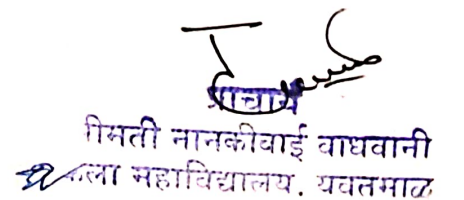 प्राचार्य
ीमती नानकीबाई वाधवानी
कला महाविद्यालय. यवतमाळ